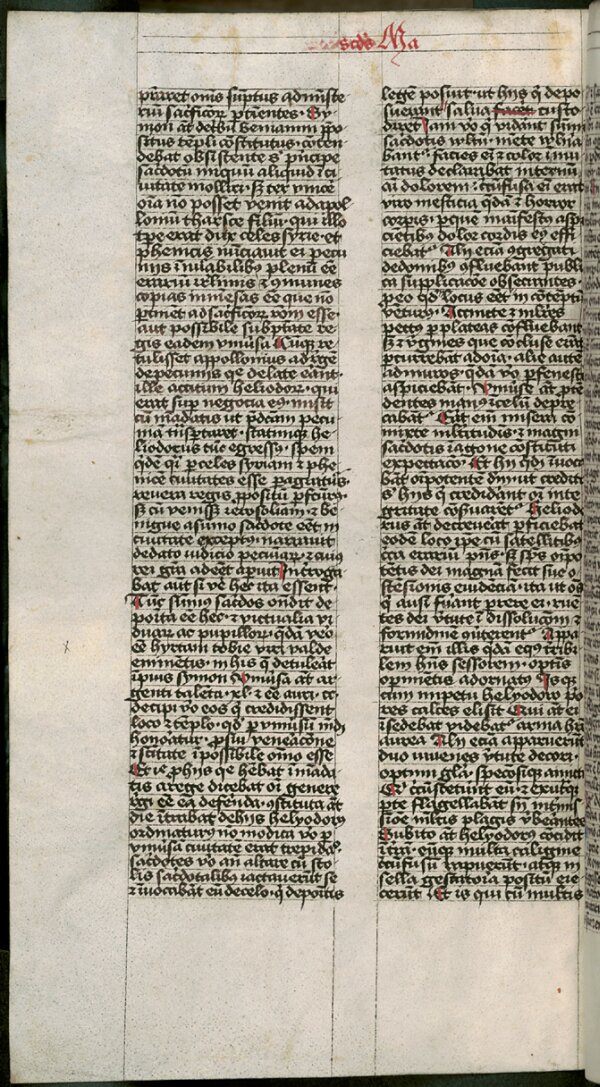 scds Ma
ptaret oms sumptus ad ministe
rium sacrificior ptinentes . Sy
mon at de tbu beniamin ppo
situs templi constitutus . conten
debat obsistente s pncipe
sacdotu iniquu aliquid i ci
uitate moliri . sz cu vince
onia no posset venit ad apol
lonium tharsee filiu . qui illo
tpe erat dux celes syrie . et
phenicis nuciauit ei pecu
niis inuabilibus plenu ee
erariu iherlimis et comunes
copias inmesas ee que no
ptinet ad sacficior roem . esse
aut possibile sub ptate re
gis cadere vniusa Cumqz re
tulisset appollonius ad rege
de pecuniis que delate eant .
ille accitum heliodor . qui
erat sup negocia eius misit
cu madatis ut pdcam pecu
nia tnsportaret . statimqz he
liodorus e tuc egressus . spem
qdem qi p celes syriam et phe
nice ciuitates esse pagiturus .
reuera regis ppositu pfecturus
sz cu venisset ierosolimam et be
nigne a sumo sacdote eet in
ciuitate exceptus . narrauit
de dato iudicio pecuniar . et cuius
rei gra adeet apuit Introga
bat aut si ve hec ita essent
Tuc sumus sacdos ondit de
posita ee hec . et victualia vi
duar ac pupillor . qdam vero
ee hyrcani tobie viri valde
eminetis . in his que detuleat
ipius symon Vniusa at ar
genti taleta . xl . et ee auri . cc
decipi vo eos qui credidissent
loco et templo . qd p vniusu mdu
honoatur . p sui veneacone
et scitate i possibile omo esse
At is p hiis que hebat i mada
tis a rege dicebat oi genere
regi ee ea defenda . ostituta at
die intrabat de hiis helyodorus
ordinaturus no modica vo p
vniusa ciuitate erat trepidaco .
sacdotes vo an altare cu sto
lis sacdotalibus iactauerut se
et inuocabat eu de celo . qui de positis
legem posuit . ut hiis qui depo
suerant salua facet custo
diret Jam vo qui vidant sumi
sacdotis vltu . mete wlnera
bant . facies ei et color inmu
tatus declarabat internu
ai dolorem circufusa ei erat
viro mesticia qdam et horror
corpis . p que maifesto aspi
cietibus dolor cordis eius effi
ciebat Alii ecia ogregati
de domibus ofluebant publi
ca supplicacoe obsecrantes .
p eo qd locus eet in contemptu
veturus . Accincte et mlres
pectus p plateas cofluebant
sz et vgines que concluse erat
pcurrebat ad onia . alie aute
ad muros . qda vo p fenestras
aspiciebat . Vniuse at pten
dentes manus i celum depre
cabat Erat eni misera co
mixte mltitudis . et magni
sacdotis i agone constituti
expectaco . Et hii qdm iuoca
bat oipotente dm . ut credita
s hiis qui credidant oi inte
gritate coseruaret Heliodo
rus at decreueat pficiebat
eode loco ipe cu satellitibus
cca erariu pns . sz sps oipo
tetis dei magnam fecit sue o
stesionis euidecia . ita ut oes
qui ausi fuant parere ei . rue
tes dei vtute i dissolucoem et
formidine overterent Appa
ruit eni illis qdam equs terribi
lem hns sessorem . optis
opimetis adornatus . Is qz
cum impetu helyodoro po
res calces elisit Qui at ei
isedebat videbat arma hre
aurea . Alii ecia apparuerut
duo iuuenes vtute decori .
optimi gla . specosiqz amictu
Qi circusteterut eu et ex utraqz
pte flagellabat sn intmis
sioe mltis plagis vberantes
Subito at helyodorus cocidit
i tra . eumqz multa caligine
circufusu rapuerut . atqz in
sella gestatoria positu eie
cerut Et is qui cu multis